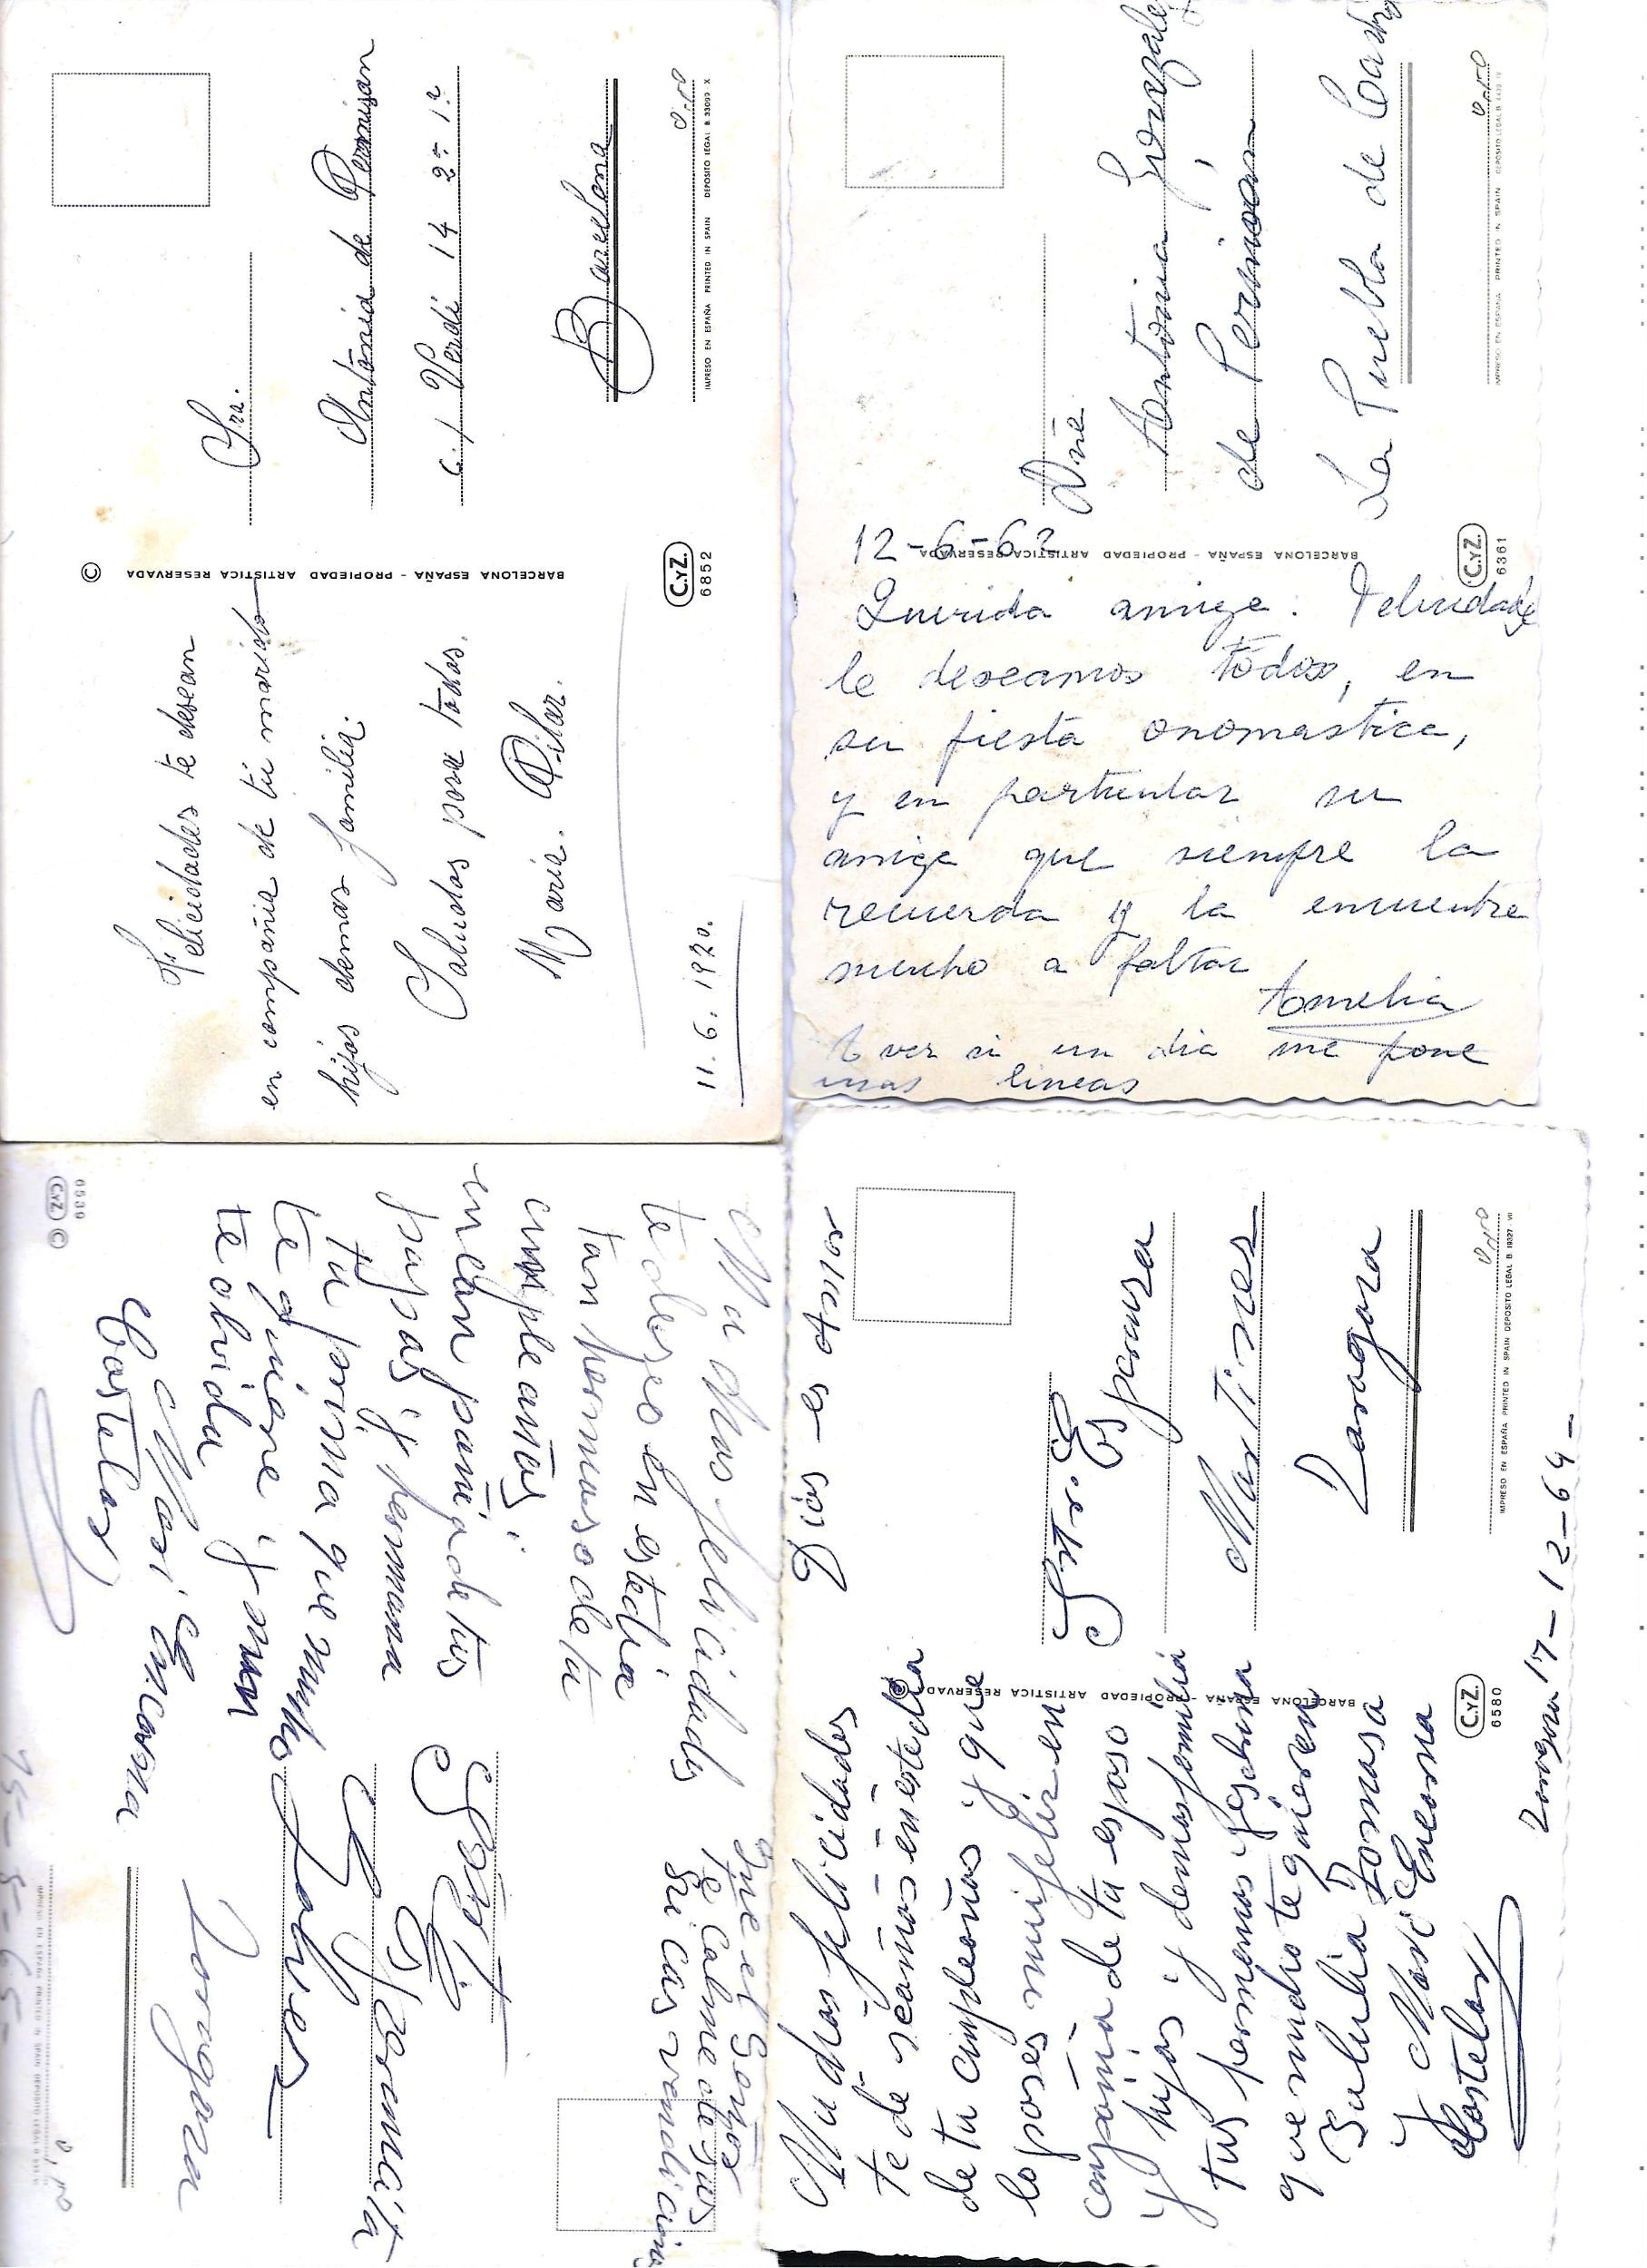 Felicidades te desean
en compañia de tú marido
hijos demas familia.
Saludos para todos.
Maria. Pilar.
11. 6. 1970.
©
BARCELONA ESPAÑA - PROPIEDAD ARTISTICA RESERVADA
C.y Z.
6852
Sra.
Antonia de Permisan
c./ Verdi 14 2º 1ª
Barcelona
IMPRESO EN ESPAÑA PRINTED IN SPAIN DEPOSITO LEGAL B. 33099 X
12-6-62
Querida amiga: Felicidades
le deseamos todos, en
su fiesta onomastica,
y en particular su
amiga que siempre la
recuerda y la encuentra
mucho a faltar
Amelia
A ver si un dia me pone
unas lineas
BARCELONA ESPAÑA - PROPIEDAD ARTISTICA RESERVADA
C.y Z.
6361
Dña
Antonia González
de Permisan
La Puebla de Castro
IMPRESO EN ESPAÑA PRINTED IN SPAIN DEPOSITO LEGAL B.
6539
C.y Z. ©
Muchas felicidades
te deseo en este dia
tan hermoso de tu
cumpleaños
en compañia de tus
papas y hermana
tu prima que mucho
te quiere y nun
te olvida
Mari Encarna
Costelas
Que el Señor
te colme de sus
ricas vendiciones
Srta
Galvez
Zaragoza
15-5-65-
Dios es Amor
Muchas felicidades
te deseamos en este dia
de tu cumpleaños y que
lo pases muy feliz en
compañia de tu esposo
y hijos y demas familia
tus hermanos
que mucho te quieren
Tomasa
y Mari Encarna
Costelas
©
BARCELONA ESPAÑA - PROPIEDAD ARTISTICA RESERVADA
C.y Z.
6580
Zaragoza 17-12-64-
Sra. Esperanza
Martines
Zaragoza
IMPRESO EN ESPAÑA PRINTED IN SPAIN DEPOSITO LEGAL B. 19327 VII